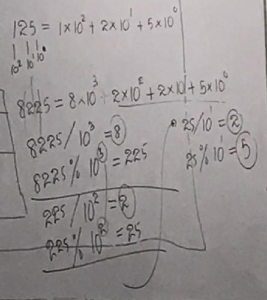 125 = 1×10² + 2×10¹ + 5×10⁰
10² 10¹ 10⁰
8225 = 8×10³ + 2×10² + 2×10¹ + 5×10⁰
8225 / 10³ = 8
8225 % 10³ = 225
225 / 10² = 2
225 % 10² = 25
25 / 10¹ = 2
25 % 10¹ = 5